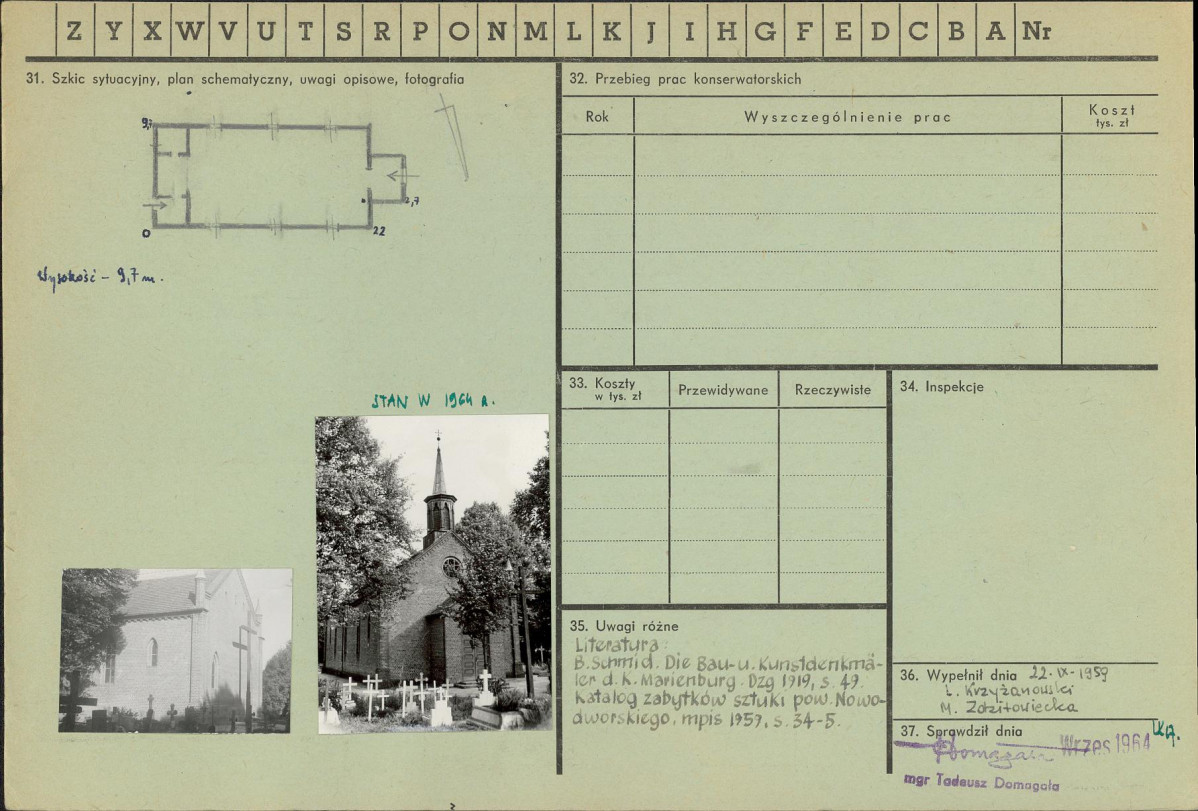 Z Y X W V U T S R P O N M L K J I H G F E D C B A Nr
31. Szkic sytuacyjny, plan schematyczny, uwagi opisowe, fotografia
9,7
2,7
0
22
Wysokość – 9,7 m.
STAN W 1964 R.
32. Przebieg prac konserwatorskich
Rok
Wyszczególnienie prac
Koszt
tys. zł
33. Koszty
w tys. zł
Przewidywane
Rzeczywiste
34. Inspekcje
35. Uwagi różne
Literatura:
B. Schmid. Die Bau- u. Kunstdenkmä-
ler d. K. Marienburg. Dzg 1919, s. 49.
Katalog zabytków sztuki pow. Nowo-
dworskiego, mpis 1957, s. 34-5.
36. Wypełnił dnia 22. IX - 1959
L. Krzyżanowski
M.
37. Sprawdził dnia
Wrzes 1964
mgr Tadeusz Domagała